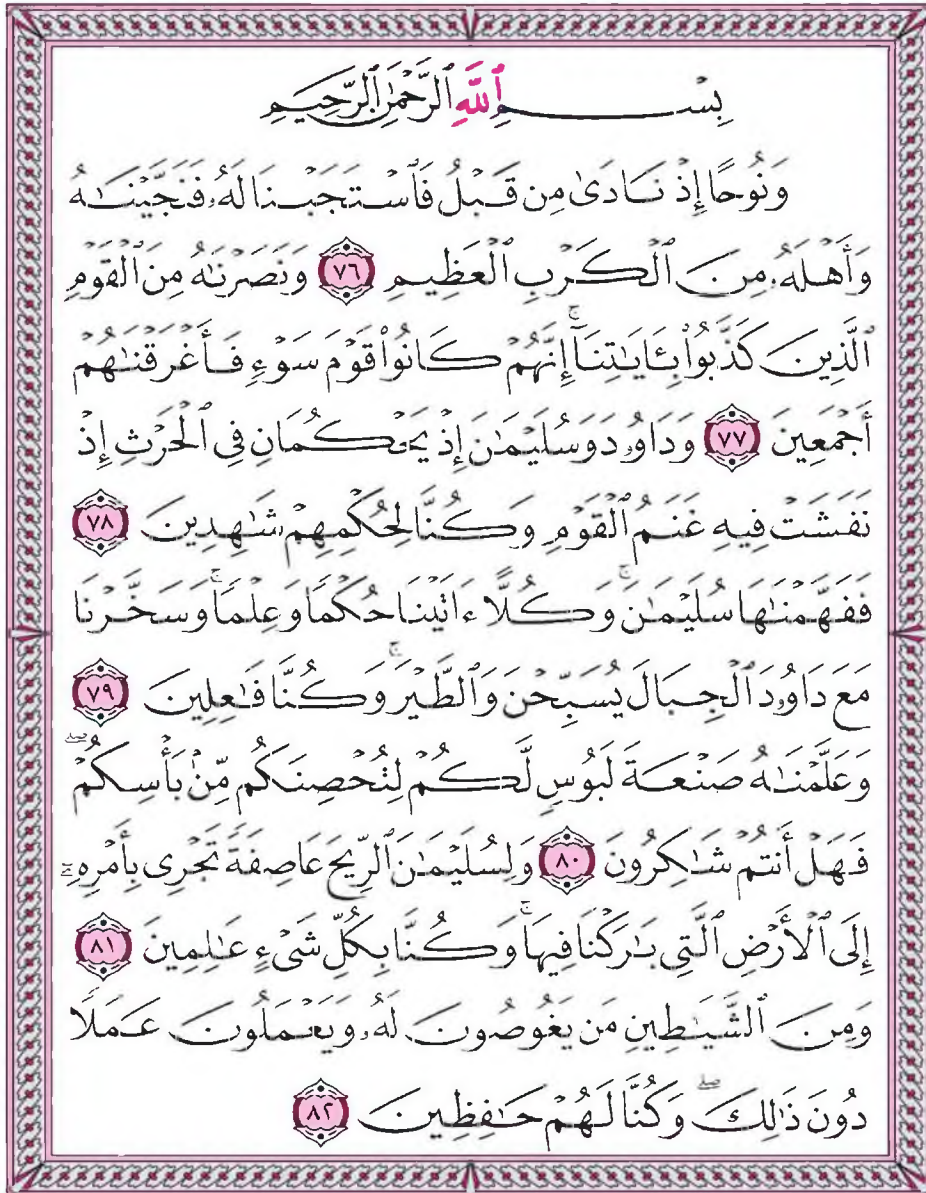 بِسْمِ ٱللَّهِ ٱلرَّحْمَٰنِ ٱلرَّحِيمِ
وَنُوحًا إِذْ نَادَىٰ مِن قَبْلُ فَٱسْتَجَبْنَا لَهُۥ فَنَجَّيْنَٰهُ
وَأَهْلَهُۥ مِنَ ٱلْكَرْبِ ٱلْعَظِيمِ ٧٦ وَنَصَرْنَٰهُ مِنَ ٱلْقَوْمِ
ٱلَّذِينَ كَذَّبُوا۟ بِـَٔايَٰتِنَآ ۚ إِنَّهُمْ كَانُوا۟ قَوْمَ سَوْءٍ فَأَغْرَقْنَٰهُمْ
أَجْمَعِينَ ٧٧ وَدَاوُۥدَ وَسُلَيْمَٰنَ إِذْ يَحْكُمَانِ فِى ٱلْحَرْثِ إِذْ
نَفَشَتْ فِيهِ غَنَمُ ٱلْقَوْمِ وَكُنَّا لِحُكْمِهِمْ شَٰهِدِينَ ٧٨
فَفَهَّمْنَٰهَا سُلَيْمَٰنَ ۚ وَكُلًّا ءَاتَيْنَا حُكْمًا وَعِلْمًا ۚ وَسَخَّرْنَا
مَعَ دَاوُۥدَ ٱلْجِبَالَ يُسَبِّحْنَ وَٱلطَّيْرَ ۚ وَكُنَّا فَٰعِلِينَ ٧٩
وَعَلَّمْنَٰهُ صَنْعَةَ لَبُوسٍ لَّكُمْ لِتُحْصِنَكُم مِّنۢ بَأْسِكُمْ ۖ
فَهَلْ أَنتُمْ شَٰكِرُونَ ٨٠ وَلِسُلَيْمَٰنَ ٱلرِّيحَ عَاصِفَةً تَجْرِى بِأَمْرِهِۦٓ
إِلَى ٱلْأَرْضِ ٱلَّتِى بَٰرَكْنَا فِيهَا ۚ وَكُنَّا بِكُلِّ شَىْءٍ عَٰلِمِينَ ٨١
وَمِنَ ٱلشَّيَٰطِينِ مَن يَغُوصُونَ لَهُۥ وَيَعْمَلُونَ عَمَلًا
دُونَ ذَٰلِكَ ۖ وَكُنَّا لَهُمْ حَٰفِظِينَ ٨٢